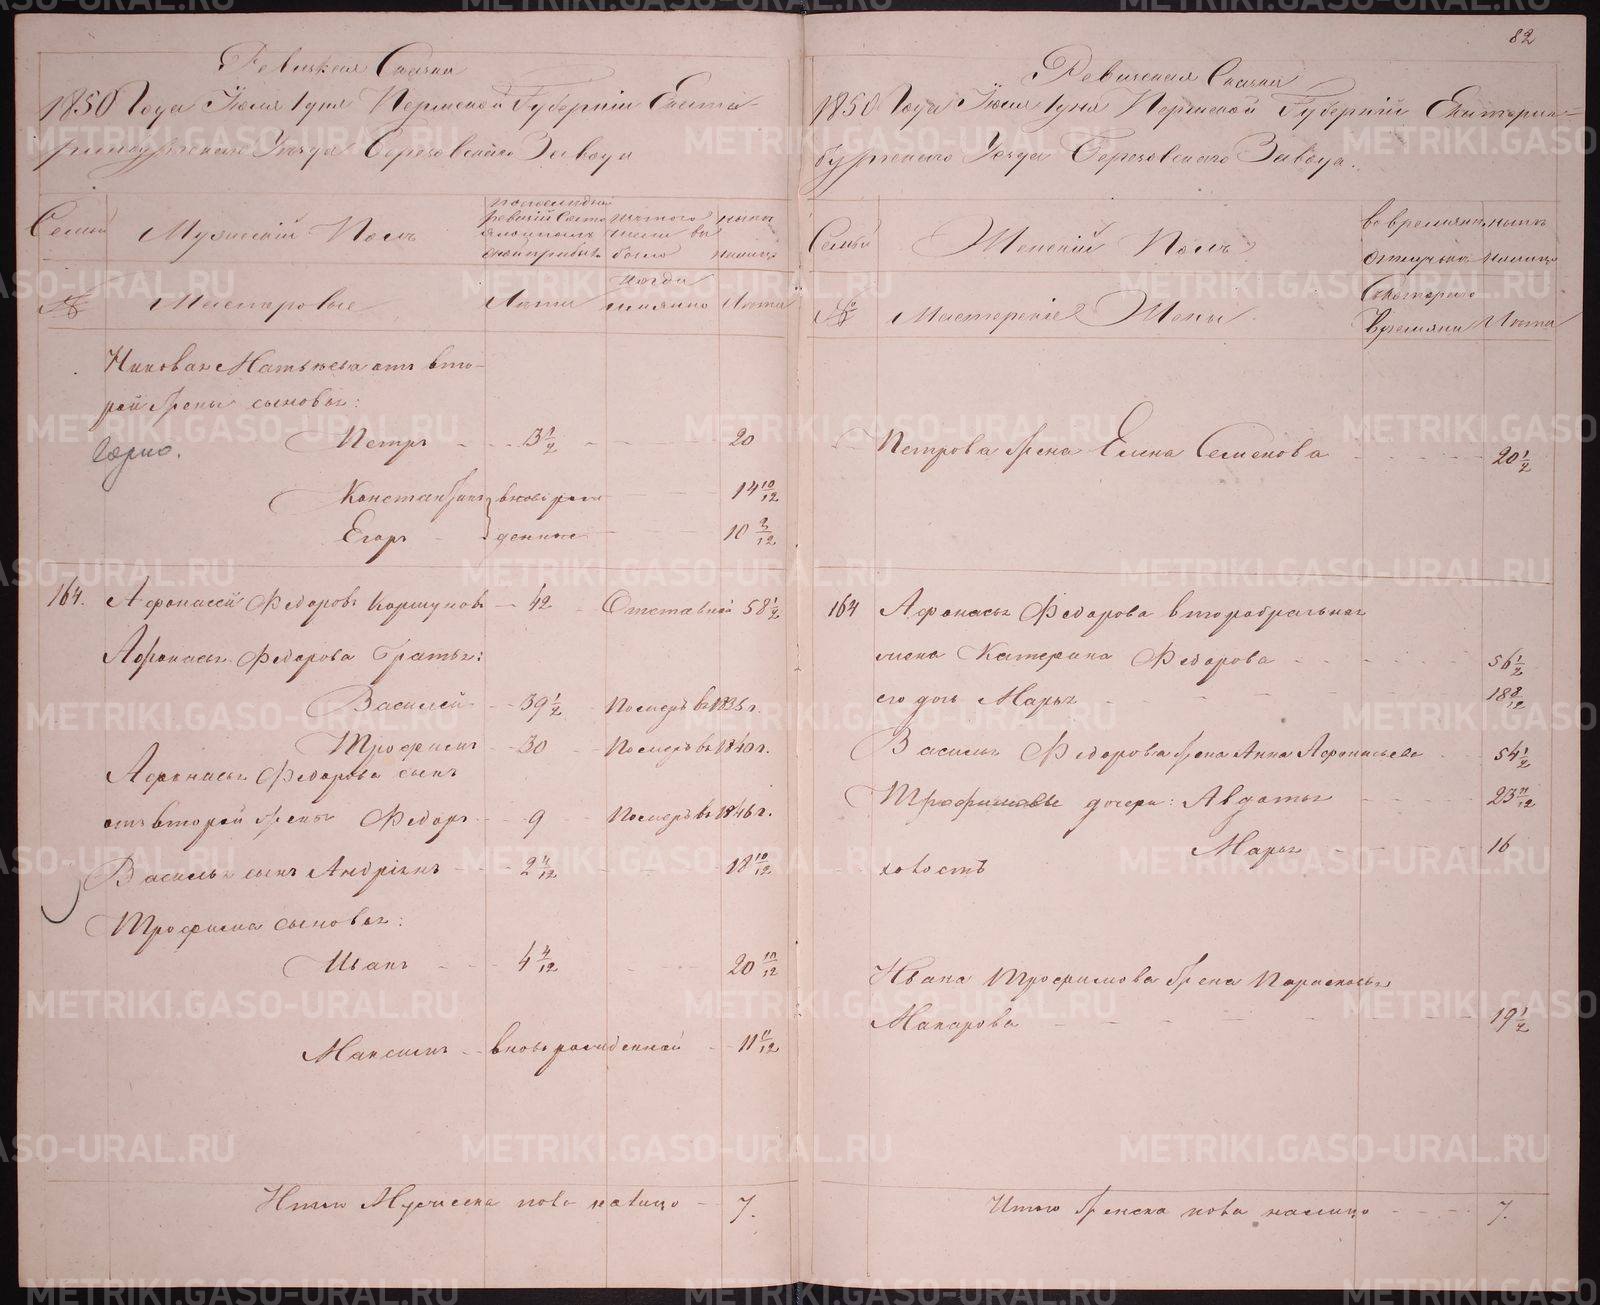 82
Ревизская Сказка
1850 Года Июля 1 дня Пермской Губернiи Екате-
ринбургскаго Уезда Березовскаго Завода
Семьи
Мужескiй Полъ
последней
ревизiи состо
изъ того
числа вы
было
ныне
налицо
№
Мастеровые
Лета
когда
имянно
Лета
Матвеева отъ вто-
рой жены сыновья:
Горно.
Петръ 3 1/2 20
Константинъ вновь рож 14 10/12
Егоръ денные 10 3/12
164. Афонасей Федоровъ Коршуновъ 42 Отставной 58 1/2
Афонасья Федорова Братья:
Василей 39 1/2 Померъ въ 1835 г.
Трофимъ 30 Померъ въ 1840 г.
Афонасья Федорова сынъ
отъ второй жены Федоръ 9 Померъ въ 1846 г.
Василья сынъ Андрiянъ 2 4/12 18 10/12
Трофима сыновья:
Иванъ 4 4/12 20 10/12
Максимъ вновь рожденной 11 11/12
Итого Мужеска пола налицо 7.
Ревизская Сказка
1850 Года Июля 1 дня Пермской Губернiй Екатерин-
бургскаго Уезда Березовскаго Завода.
Семьи
Женскiй Полъ
во временной
отлучке
ныне
налицо
№
Мастерскiе Жены
Съ котораго
времяни
Лета
Петрова жена Елена Семенова 20 1/2
164 Афонасья Федорова второбрачная
жена Катерина Федорова 56 1/2
его дочь Марья 18 8/12
Василья Федорова жена Анна Афонасьева 54 1/2
Трофимовы дочери: Авдотья 23 11/12
Марья 16
холостъ
Ивана Трофимова жена Парасковья
Макарова 19 1/2
Итого женска пола налицо 7.
METRIKI.GASO-URAL.RU